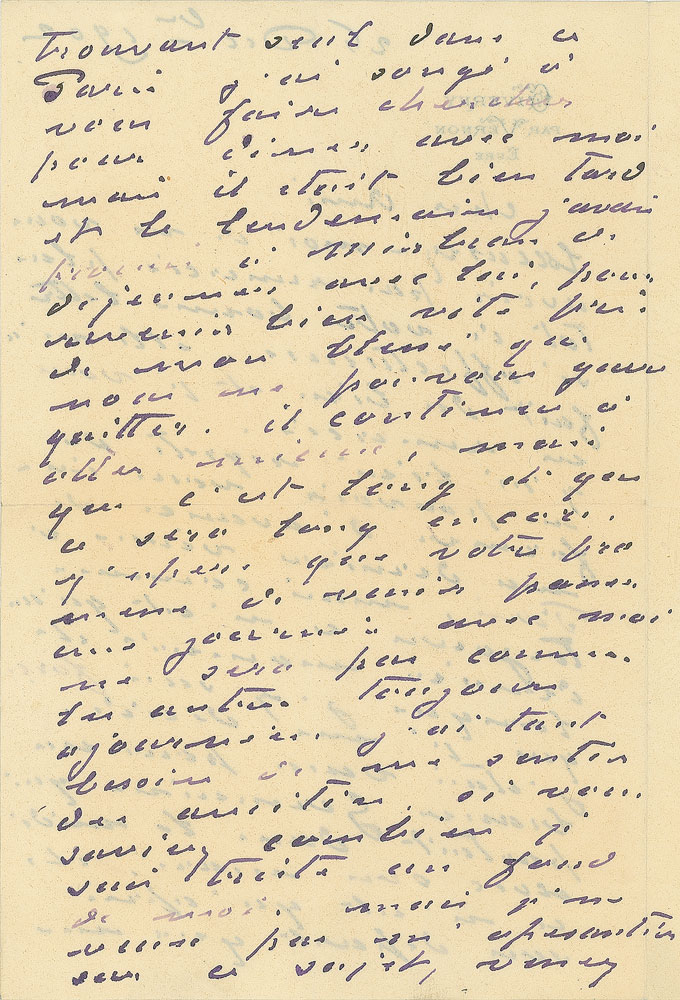 trouvant seul dans ce
Paris j'ai songé à
vous faire chercher
pour diner avec moi
mais il était bien tard
et le lendemain j'avais
promis à Mirbeau de
déjeuner avec lui, pour
revenir bien vite près
de mon blessé que
nous ne pouvons guère
quitter. il continue à
aller mieux, mais
que c'est long et que
ce sera long encore.
j'espère que votre pro
messe de venir passer
une journée avec moi
ne sera pas comme
les autres toujours
ajournée. j'ai tant
besoin de me sentir
des amitiés, si vous
saviez combien je
suis triste au fond
de moi. mais je ne
veux pas m'apesantir
sur ce sujet, venez